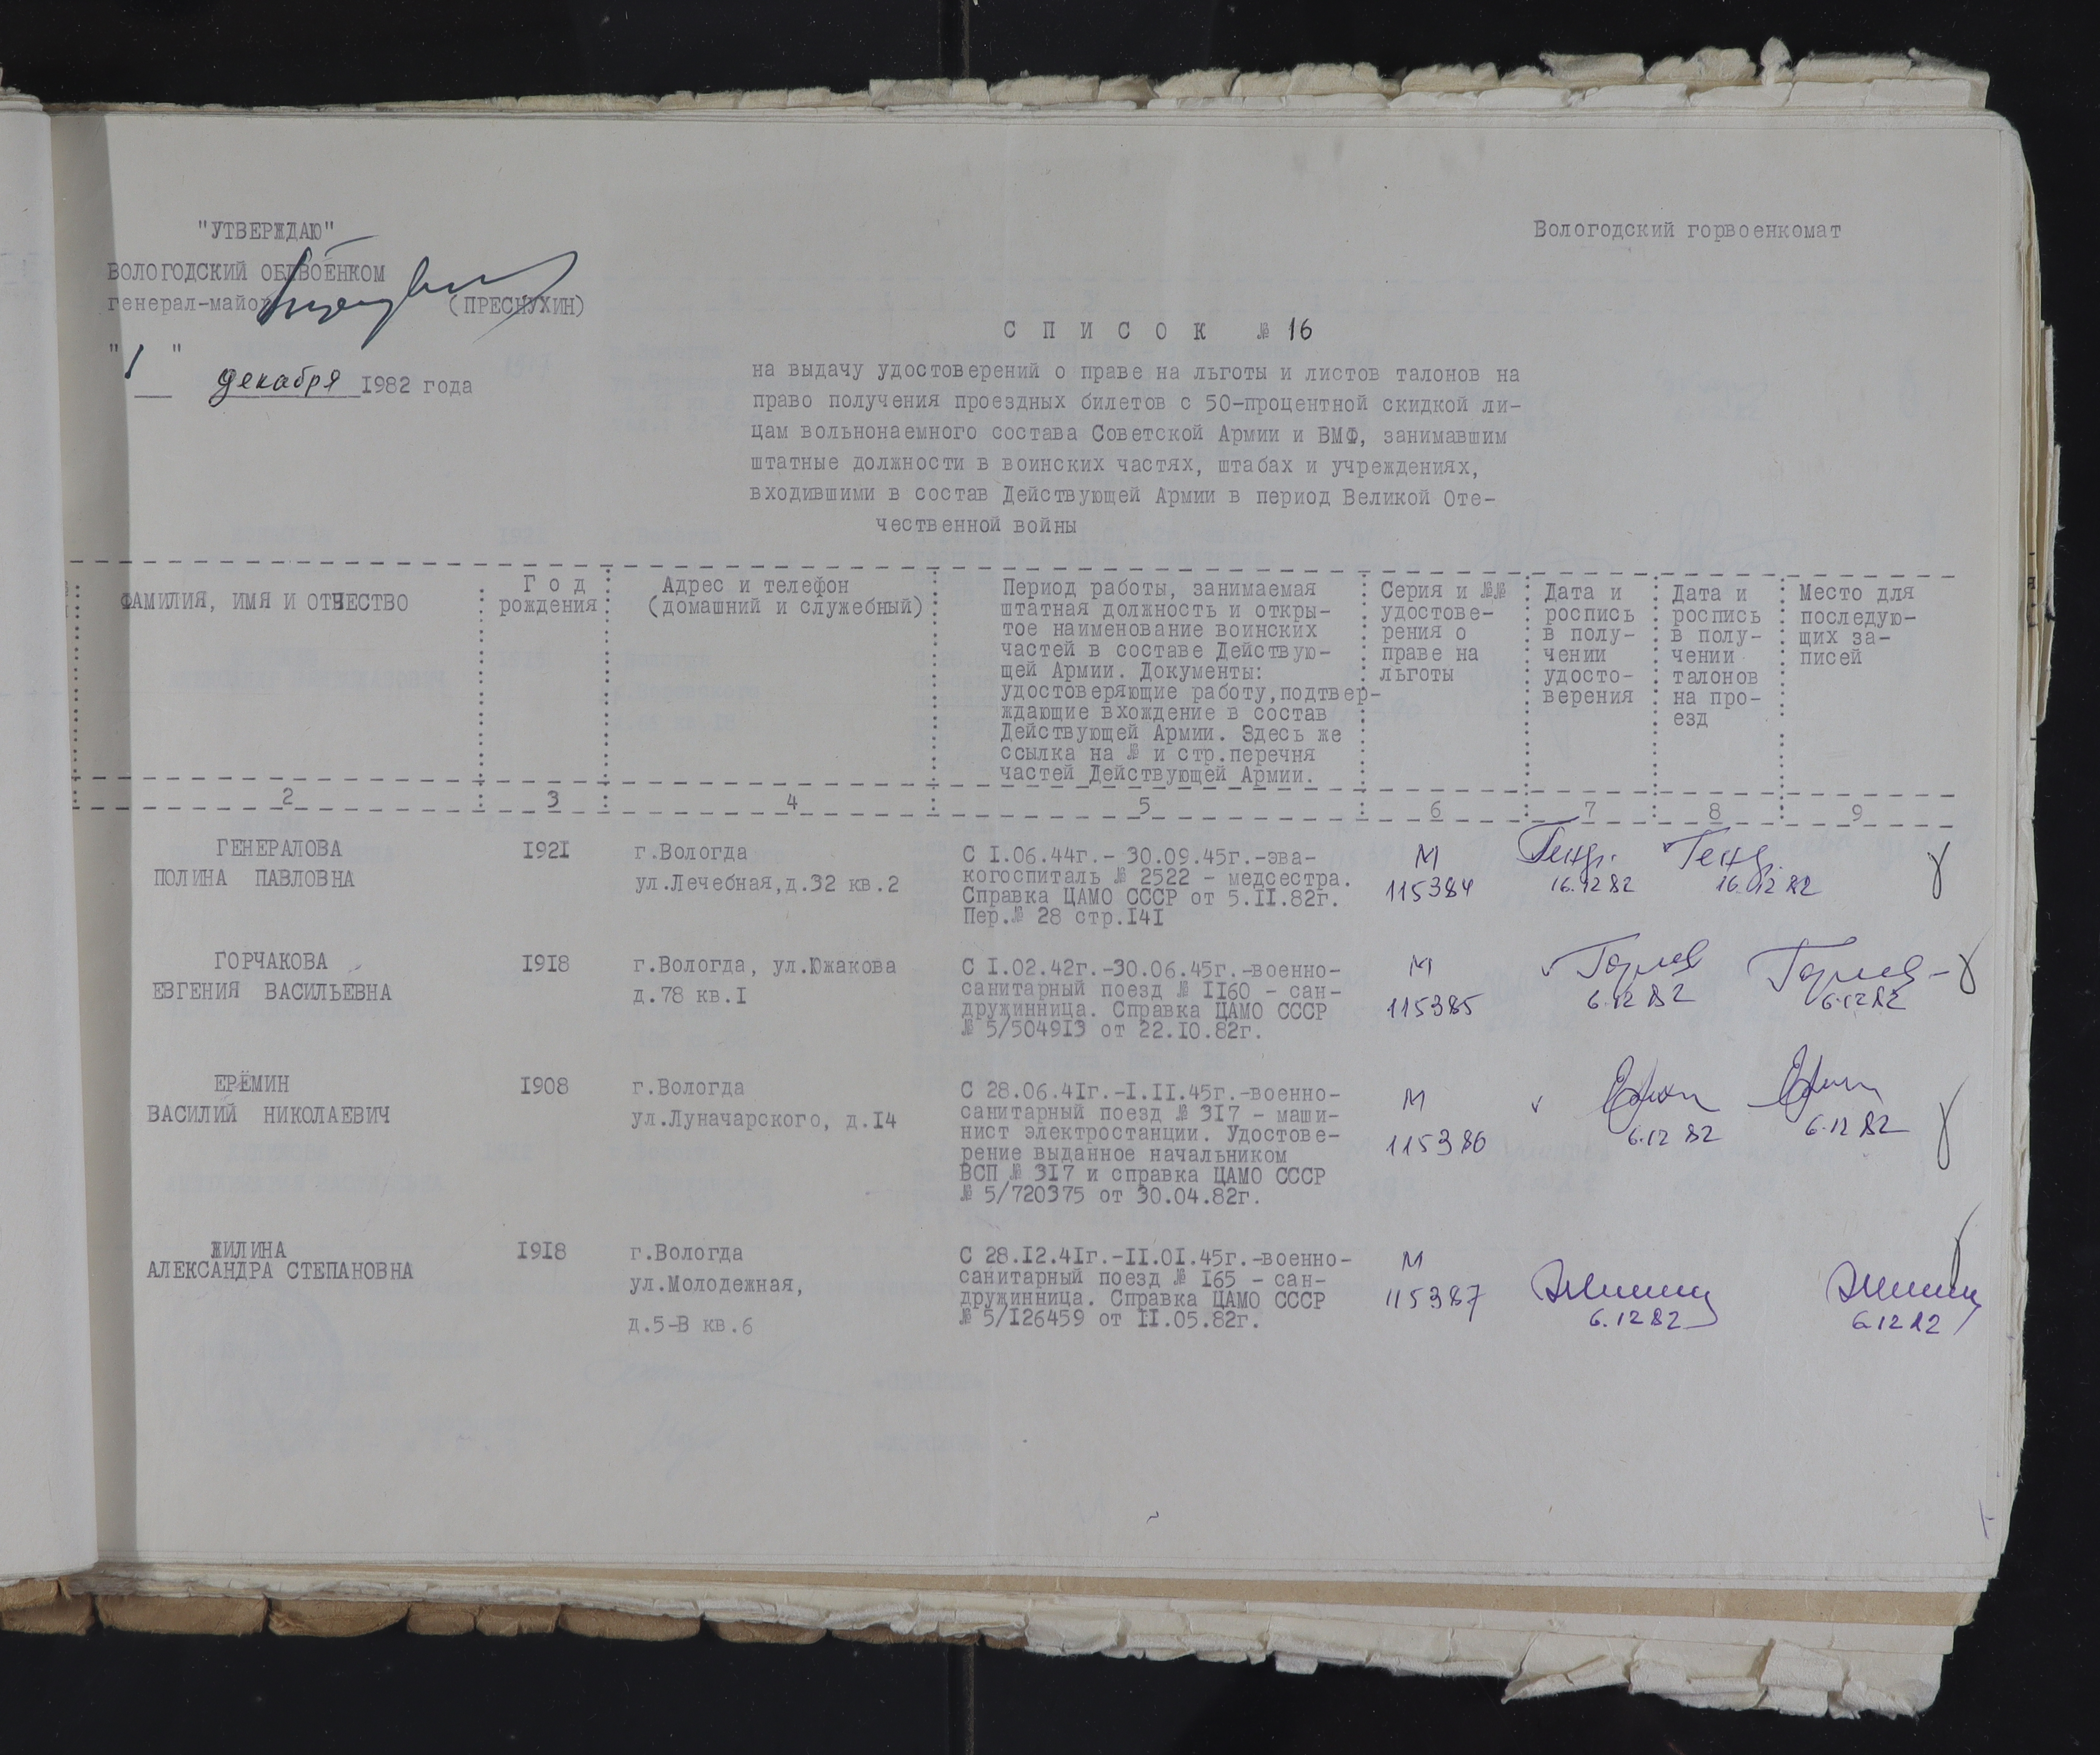 "УТВЕРЖДАЮ"
ВОЛОГОДСКИЙ ОБЛВОЕНКОМ
генерал-майор (ПРЕСНУХИН)
"1" декабря 1982 года
Вологодский горвоенкомат
С П И С О К № 16
на выдачу удостоверений о праве на льготы и листов талонов на
право получения проездных билетов с 50-процентной скидкой ли-
цам вольнонаемного состава Советской Армии и ВМФ, занимавшим
штатные должности в воинских частях, штабах и учреждениях,
входившими в состав Действующей Армии в период Великой Оте-
чественной войны
ФАМИЛИЯ, ИМЯ И ОТЧЕСТВО
Г о д
рождения
Адрес и телефон
(домашний и служебный)
Период работы, занимаемая
штатная должность и откры-
тое наименование воинских
частей в составе Действую-
щей Армии. Документы:
удостоверяющие работу,подтвер-
ждающие вхождение в состав
Действующей Армии. Здесь же
ссылка на № и стр.перечня
частей Действующей Армии.
Серия и №№
удостове-
рения о
праве на
льготы
Дата и
роспись
в полу-
чении
удосто-
верения
Дата и
роспись
в полу-
чении
талонов
на про-
езд
Место для
последую-
щих за-
писей
2 3 4 5 6 7 8 9
ГЕНЕРАЛОВА
ПОЛИНА ПАВЛОВНА
I92I
г.Вологда
ул.Лечебная,д.32 кв.2
С I.06.44г.- 30.09.45г.-эва-
когоспиталь № 2522 - медсестра.
Справка ЦАМО СССР от 5.II.82г.
Пер.№ 28 стр.I4I
М
115384
16.12 82
16.12 82
ГОРЧАКОВА
ЕВГЕНИЯ ВАСИЛЬЕВНА
I9I8
г.Вологда, ул.Южакова
д.78 кв.I
С I.02.42г.-30.06.45г.-военно-
санитарный поезд № II60 - сан-
дружинница. Справка ЦАМО СССР
№ 5/5049I3 от 22.I0.82г.
М
115385
6.12 82
6.12 82
ЕРЁМИН
ВАСИЛИЙ НИКОЛАЕВИЧ
I908
г.Вологда
ул.Луначарского, д.I4
С 28.06.4Iг.-I.II.45г.-военно-
санитарный поезд № 3I7 - маши-
нист электростанции. Удостове-
рение выданное начальником
ВСП № 3I7 и справка ЦАМО СССР
№ 5/720375 от 30.04.82г.
М
115386
6.12 82
6.12 82
ЖИЛИНА
АЛЕКСАНДРА СТЕПАНОВНА
I9I8
г.Вологда
ул.Молодежная,
д.5-В кв.6
С 28.I2.4Iг.-II.0I.45г.-военно-
санитарный поезд № I65 - сан-
дружинница. Справка ЦАМО СССР
№ 5/I26459 от II.05.82г.
М
115387
6.12 82
6.12 82